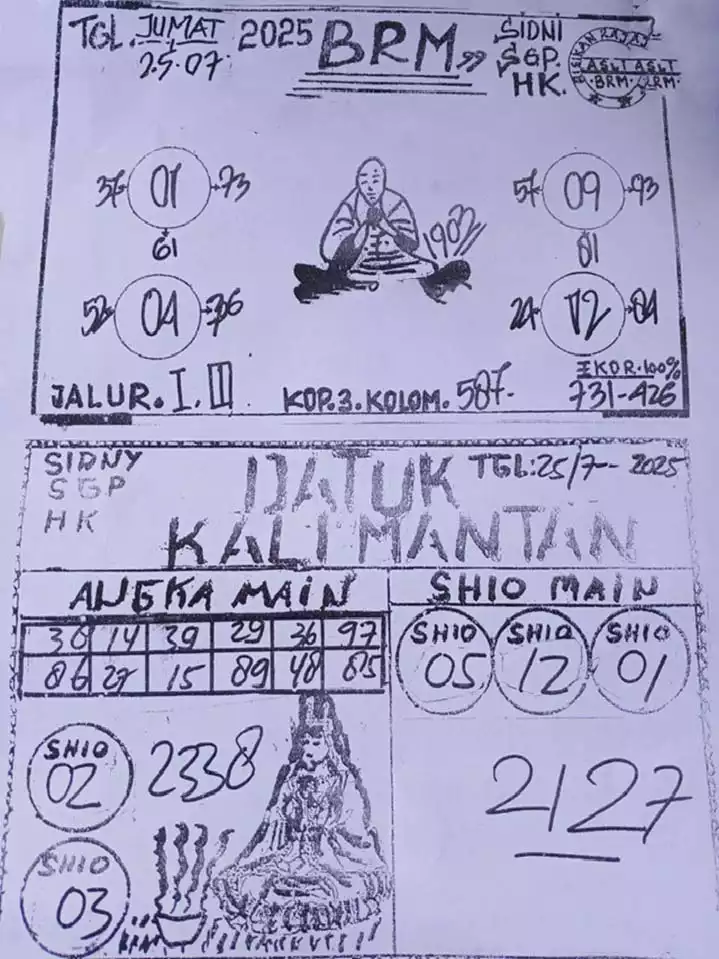 TGL. JUMAT 2025 BRM
25.07
SIDNI
SGP.
HK.
ASLI ASLI
BRM
01 73
61
04
57 09 93
01
24 12 04
1902
JALUR. I. III
KOP.3.KOLOM. 587.
EKOR.100%
731-426
SIDNY
SGP
HK
DATUK
KALIMANTAN
TGL:25/7-2025
ANGKA MAIN
38 14 39 29 36 97
86 27 15 89 48 85
SHIO MAIN
SHIO SHIO SHIO
05 12 01
SHIO
02
2338
2127
SHIO
03